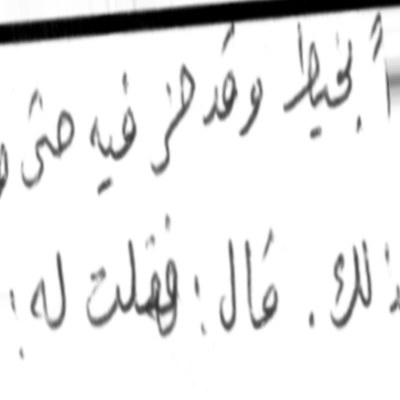 بخيط وقد حز فيه حتى
ذلك. قال: فقلت له: